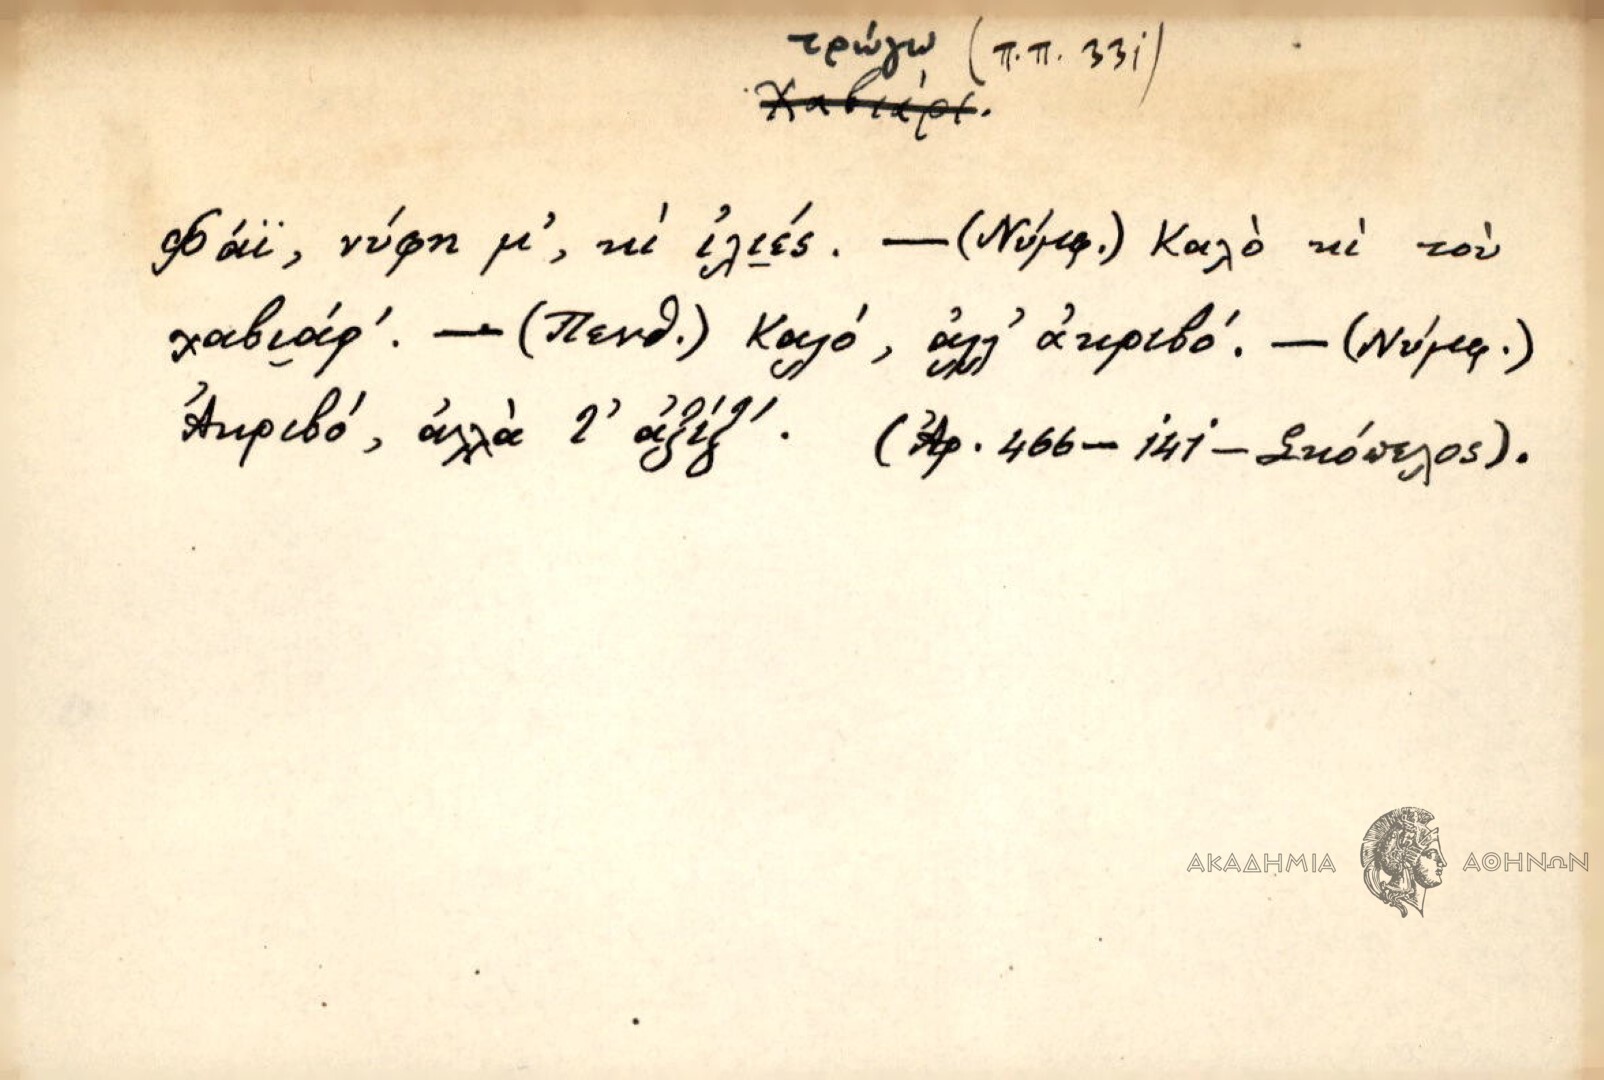 τρώγω (π.π. 331)
Χαβιάρι.
Φάϊ, νύφη μ', κὶ ἐλιές. — (Νύμφ.) Καλὸ κὶ τοὺ
χαβιάρ'. — (Πενθ.) Καλό, ἀλλ' ἀκριβό. — (Νύμφ.)
Ἀκριβό, ἀλλὰ τ' ἀξίζ'. (Ἀρ. 466 – 141 – Σκόπελος).
ΑΚΑΔΗΜΙΑ ΑΘΗΝΩΝ